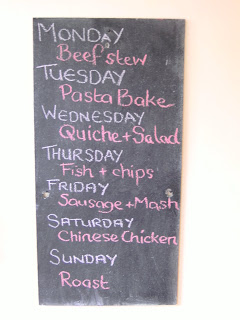 MONDAY
Beef stew
TUESDAY
Pasta Bake
WEDNESDAY
Quiche + Salad
THURSDAY
Fish + chips
FRIDAY
Sausage + Mash
SATURDAY
Chinese Chicken
SUNDAY
Roast